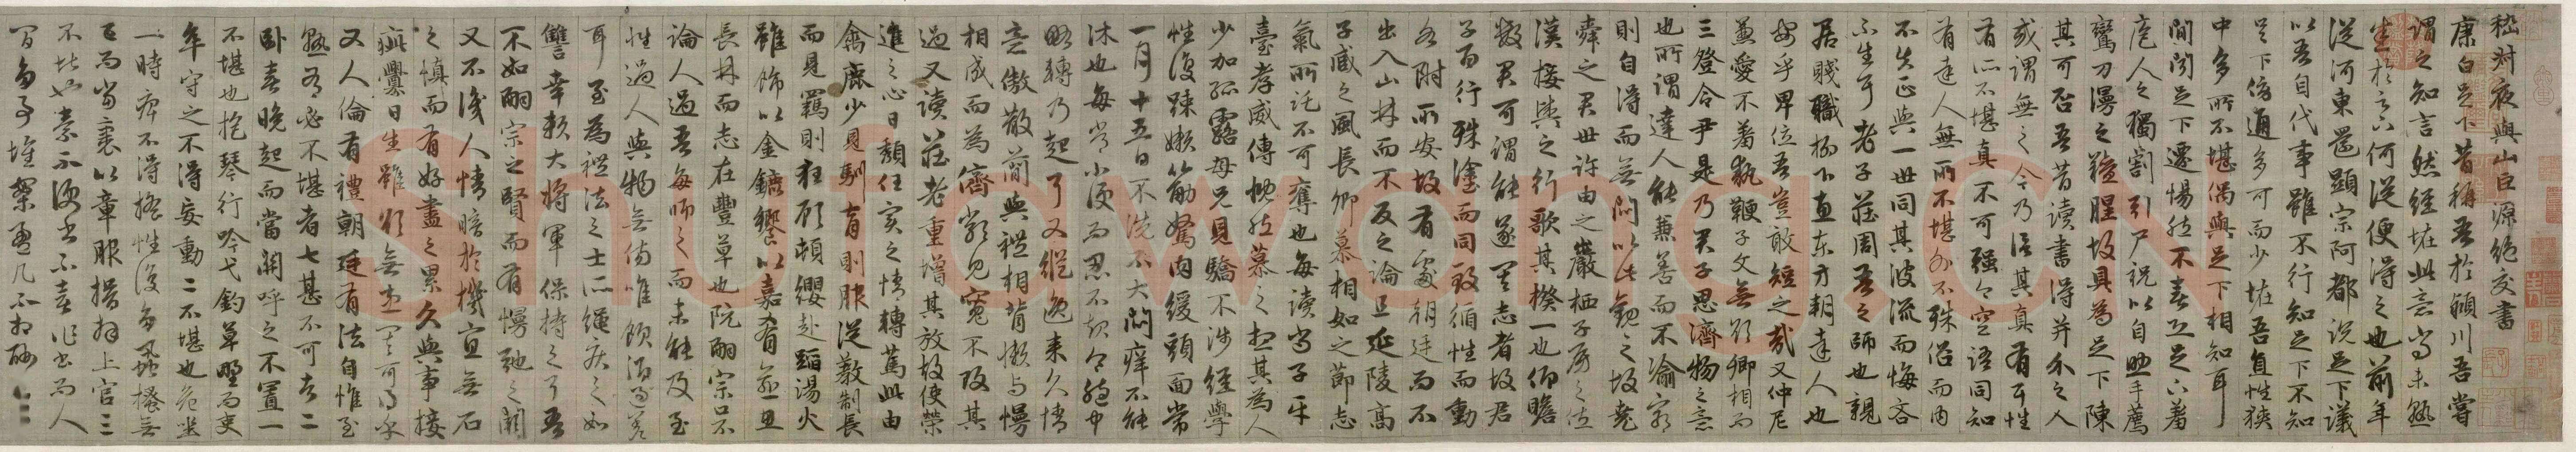 嵇叔夜與山巨源絕交書
康白足下昔稱吾於潁川吾嘗
謂之知言然經怪此意尚未熟
悉於足下何從便得之也前年
從河東還顯宗阿都說足下議
以吾自代事雖不行知足下不知
之足下傍通多可而少怪吾直性狹
中多所不堪偶與足下相知耳
間聞足下遷惕然不喜恐足下羞
庖人之獨割引尸祝以自助手薦
鸞刀漫之羶腥故具為足下陳
其可否吾昔讀書得并介之人
或謂無之今乃信其真有耳性
有所不堪真不可強今空語同知
有達人無所不堪外不殊俗而內
不失正與一世同其波流而悔吝
不生耳老子莊周吾之師也親
居賤職柳下惠東方朔達人也
安乎卑位吾豈敢短之哉又仲尼
兼愛不羞執鞭子文無欲卿相而
三登令尹是乃君子思濟物之意
也所謂達人能兼善而不渝窮
則自得而無悶以此觀之故堯
舜之君世許由之巖栖子房之佐
漢接輿之行歌其揆一也仰瞻
數君可謂能遂其志者故君
子百行殊塗而同致循性而動
各附所安故有處朝廷而不
出入山林而不反之論且延陵高
子臧之風長卿慕相如之節志
氣所託不可奪也每讀尚子平
臺孝威傳慨然慕之想其為人
少加孤露母兄見驕不涉經學
性復疎嬾筋駑肉緩頭面常
一月十五日不洗不大悶癢不能
沐也每常小便而忍不起令胞中
略轉乃起耳又縱逸來久情
意傲散簡與禮相背懶與慢
相成而為儕類見寬不攻其
過又讀莊老重增其放故使榮
進之心日頹任實之情轉篤此由
禽鹿少見馴育則服從教制長
而見羈則狂顧頓纓赴蹈湯火
雖飾以金鑣饗以嘉肴逾思
長林而志在豐草也阮嗣宗口不
論人過吾每師之而未能及至
性過人與物無傷唯飲酒過差
耳至為禮法之士所繩疾之如
讎幸賴大將軍保持之耳吾
不如嗣宗之賢而有慢弛之闕
又不識人情暗於機宜無石
之慎而有好盡之累久與事接
疵釁日生雖欲無患其可得乎
又人倫有禮朝廷有法自惟至
熟有必不堪者七甚不可者二
卧喜晚起而當關呼之不置一
不堪也抱琴行吟弋釣草野而吏
卒守之不得妄動二不堪也危坐
一時痺不得搖性復多虱搔無
已而當裹以章服揖拜上官三
不堪也素不便書不喜作書而人
間多事堆案盈几不相酬